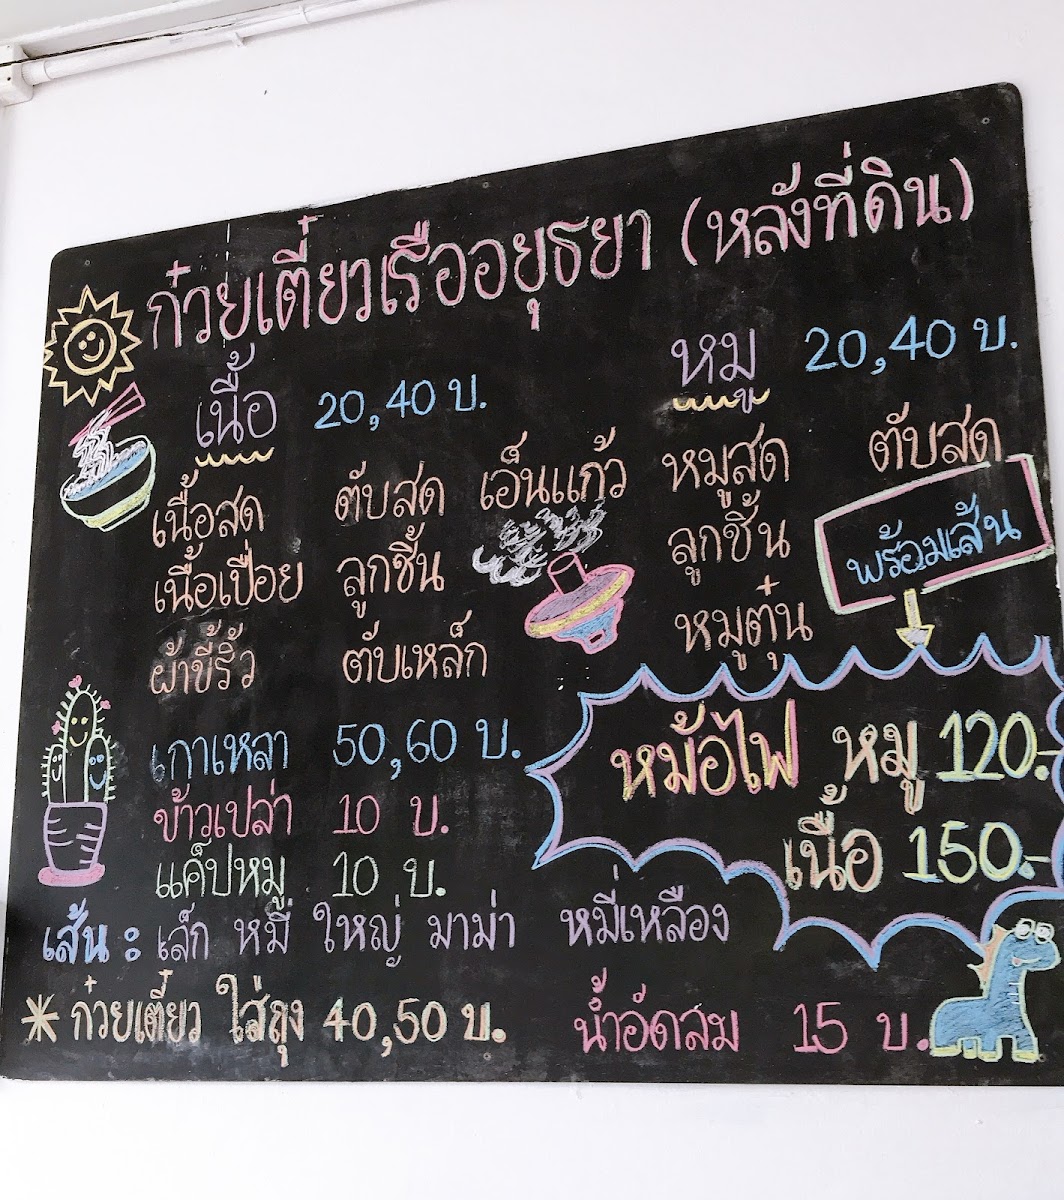 ก๋วยเตี๋ยวเรืออยุธยา (หลังที่ดิน)
เนื้อ 20,40 บ.
เนื้อสด ตับสด เอ็นแก้ว
เนื้อเปื่อย ลูกชิ้น
ผ้าขี้ริ้ว ตับเหล็ก
หมู 20,40 บ.
หมูสด ตับสด
ลูกชิ้น
หมูตุ๋น
พร้อมเส้น
หม้อไฟ หมู 120.-
เนื้อ 150.-
เกาเหลา 50,60 บ.
ข้าวเปล่า 10 บ.
แค็ปหมู 10 บ.
เส้น : เล็ก หมี่ ใหญ่ มาม่า หมี่เหลือง
* ก๋วยเตี๋ยว ใส่ถุง 40,50 บ. น้ำอัดลม 15 บ.